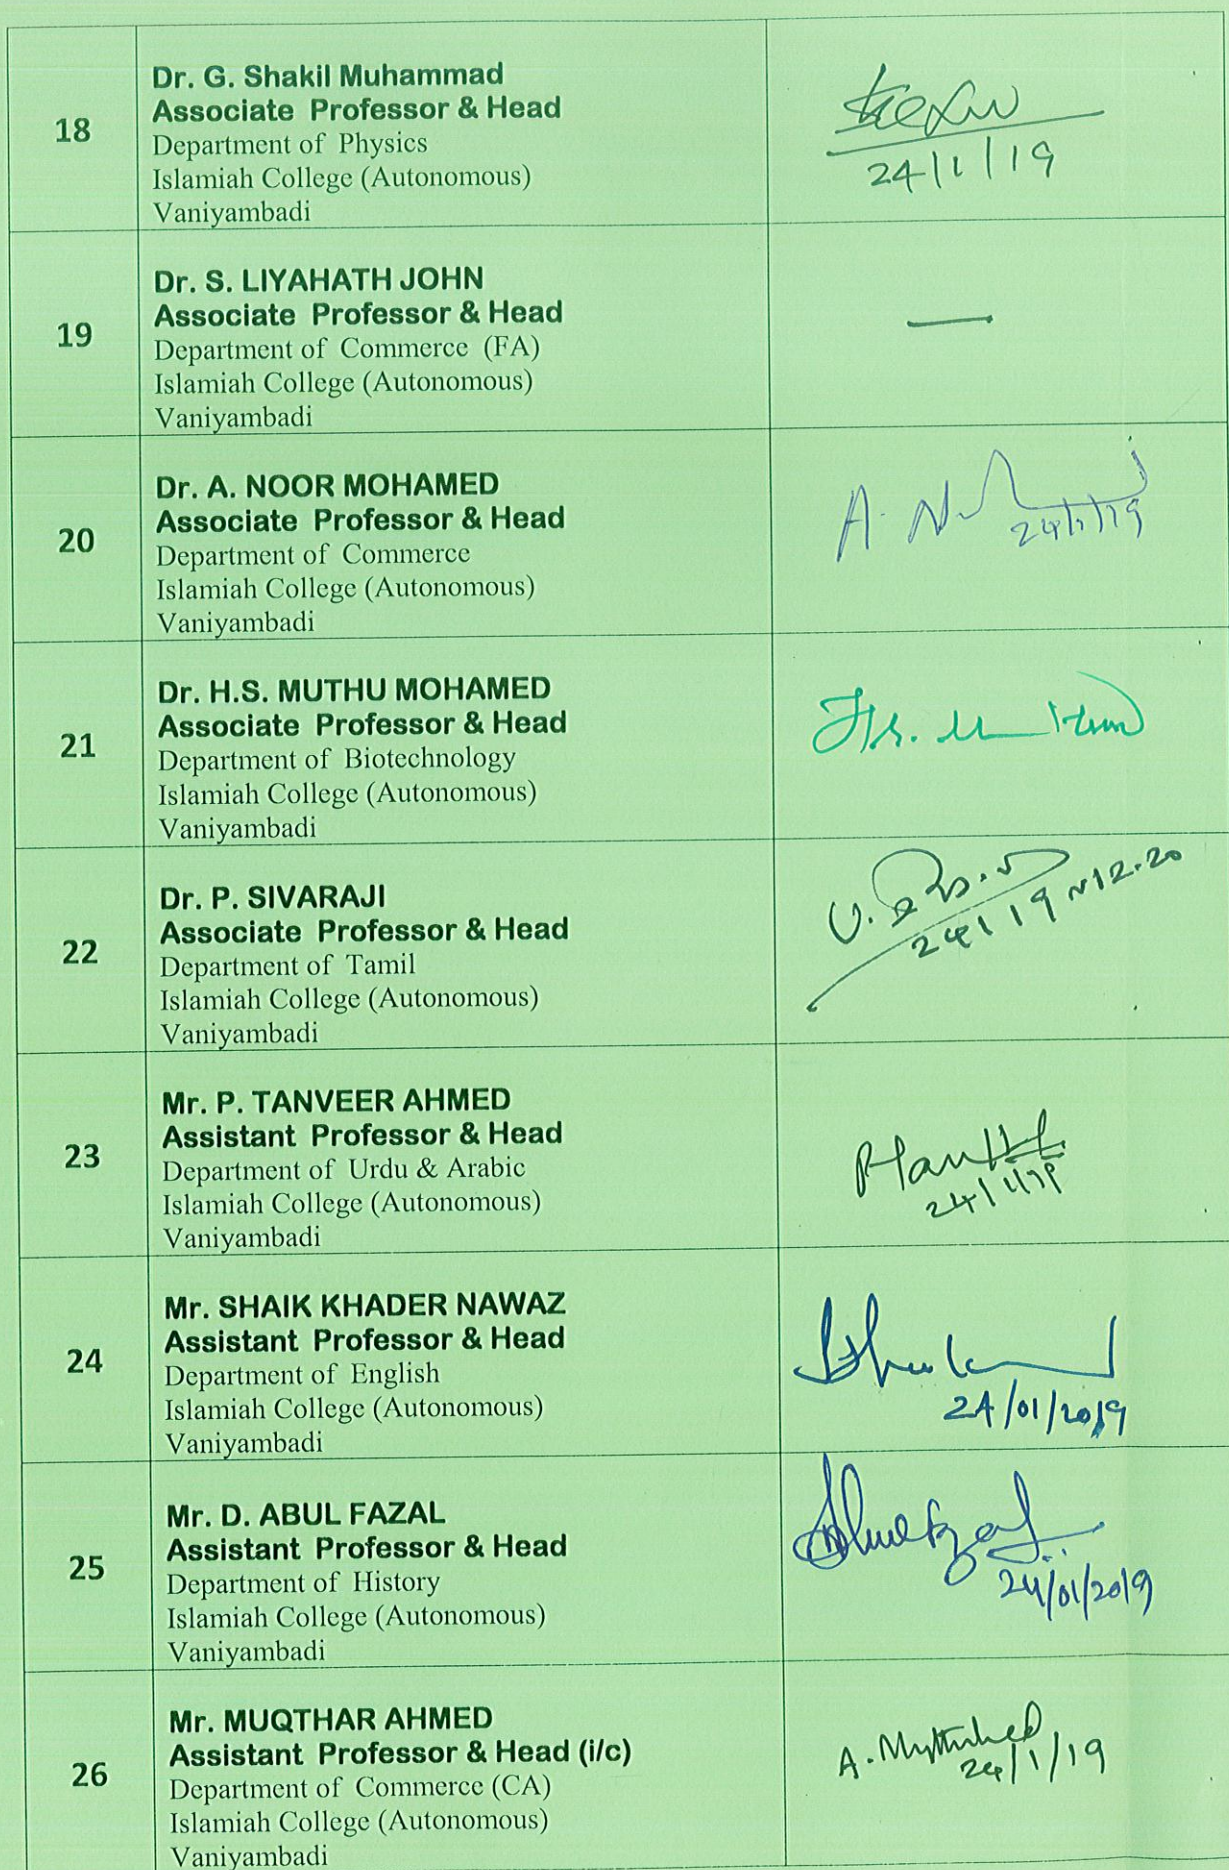 18
Dr. G. Shakil Muhammad
Associate Professor & Head
Department of Physics
Islamiah College (Autonomous)
Vaniyambadi
24/1/19
19
Dr. S. LIYAHATH JOHN
Associate Professor & Head
Department of Commerce (FA)
Islamiah College (Autonomous)
Vaniyambadi
—
20
Dr. A. NOOR MOHAMED
Associate Professor & Head
Department of Commerce
Islamiah College (Autonomous)
Vaniyambadi
A. N
24/1/19
21
Dr. H.S. MUTHU MOHAMED
Associate Professor & Head
Department of Biotechnology
Islamiah College (Autonomous)
Vaniyambadi
22
Dr. P. SIVARAJI
Associate Professor & Head
Department of Tamil
Islamiah College (Autonomous)
Vaniyambadi
12.20
23
Mr. P. TANVEER AHMED
Assistant Professor & Head
Department of Urdu & Arabic
Islamiah College (Autonomous)
Vaniyambadi
24/1/19
24
Mr. SHAIK KHADER NAWAZ
Assistant Professor & Head
Department of English
Islamiah College (Autonomous)
Vaniyambadi
24/01/2019
25
Mr. D. ABUL FAZAL
Assistant Professor & Head
Department of History
Islamiah College (Autonomous)
Vaniyambadi
24/01/2019
26
Mr. MUQTHAR AHMED
Assistant Professor & Head (i/c)
Department of Commerce (CA)
Islamiah College (Autonomous)
Vaniyambadi
24/1/19